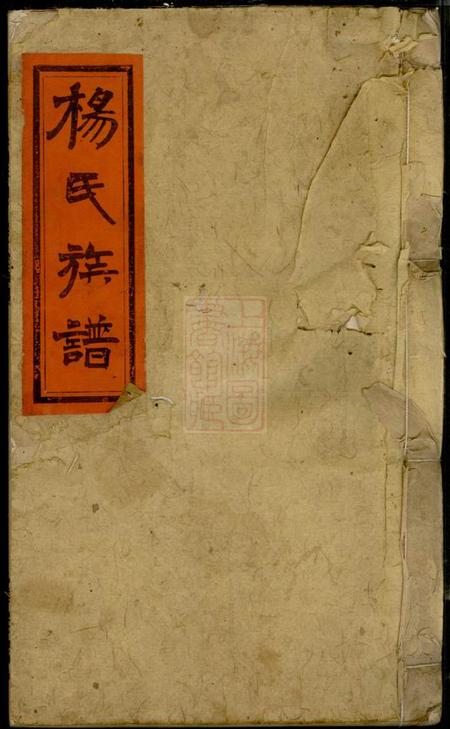 楊氏族譜
上海圖
書館藏